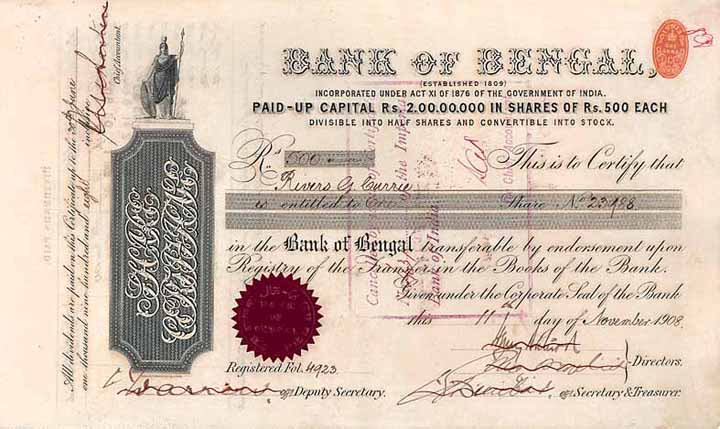 BANK OF BENGAL,
(ESTABLISHED 1809)
INCORPORATED UNDER ACT XI OF 1876 OF THE GOVERNMENT OF INDIA.
PAID-UP CAPITAL Rs. 2.00.00.000 IN SHARES OF Rs. 500 EACH
DIVISIBLE INTO HALF SHARES AND CONVERTIBLE INTO STOCK.
Rs. 500 This is to Certify that
Rivers G. Currie
is entitled to One Share No. 23988
in the Bank of Bengal transferable by endorsement upon
Registry of the Transfer in the Books of the Bank.
Given under the Corporate Seal of the Bank
this 11 day of November 1908.
Directors.
Registered Fol. 4923.
Deputy Secretary.
Secretary & Treasurer.
All dividends are paid on this Certificate up to the 30th June
one thousand nine hundred and eight inclusive
Chief Accountant.
of the Imperial
Bank of India